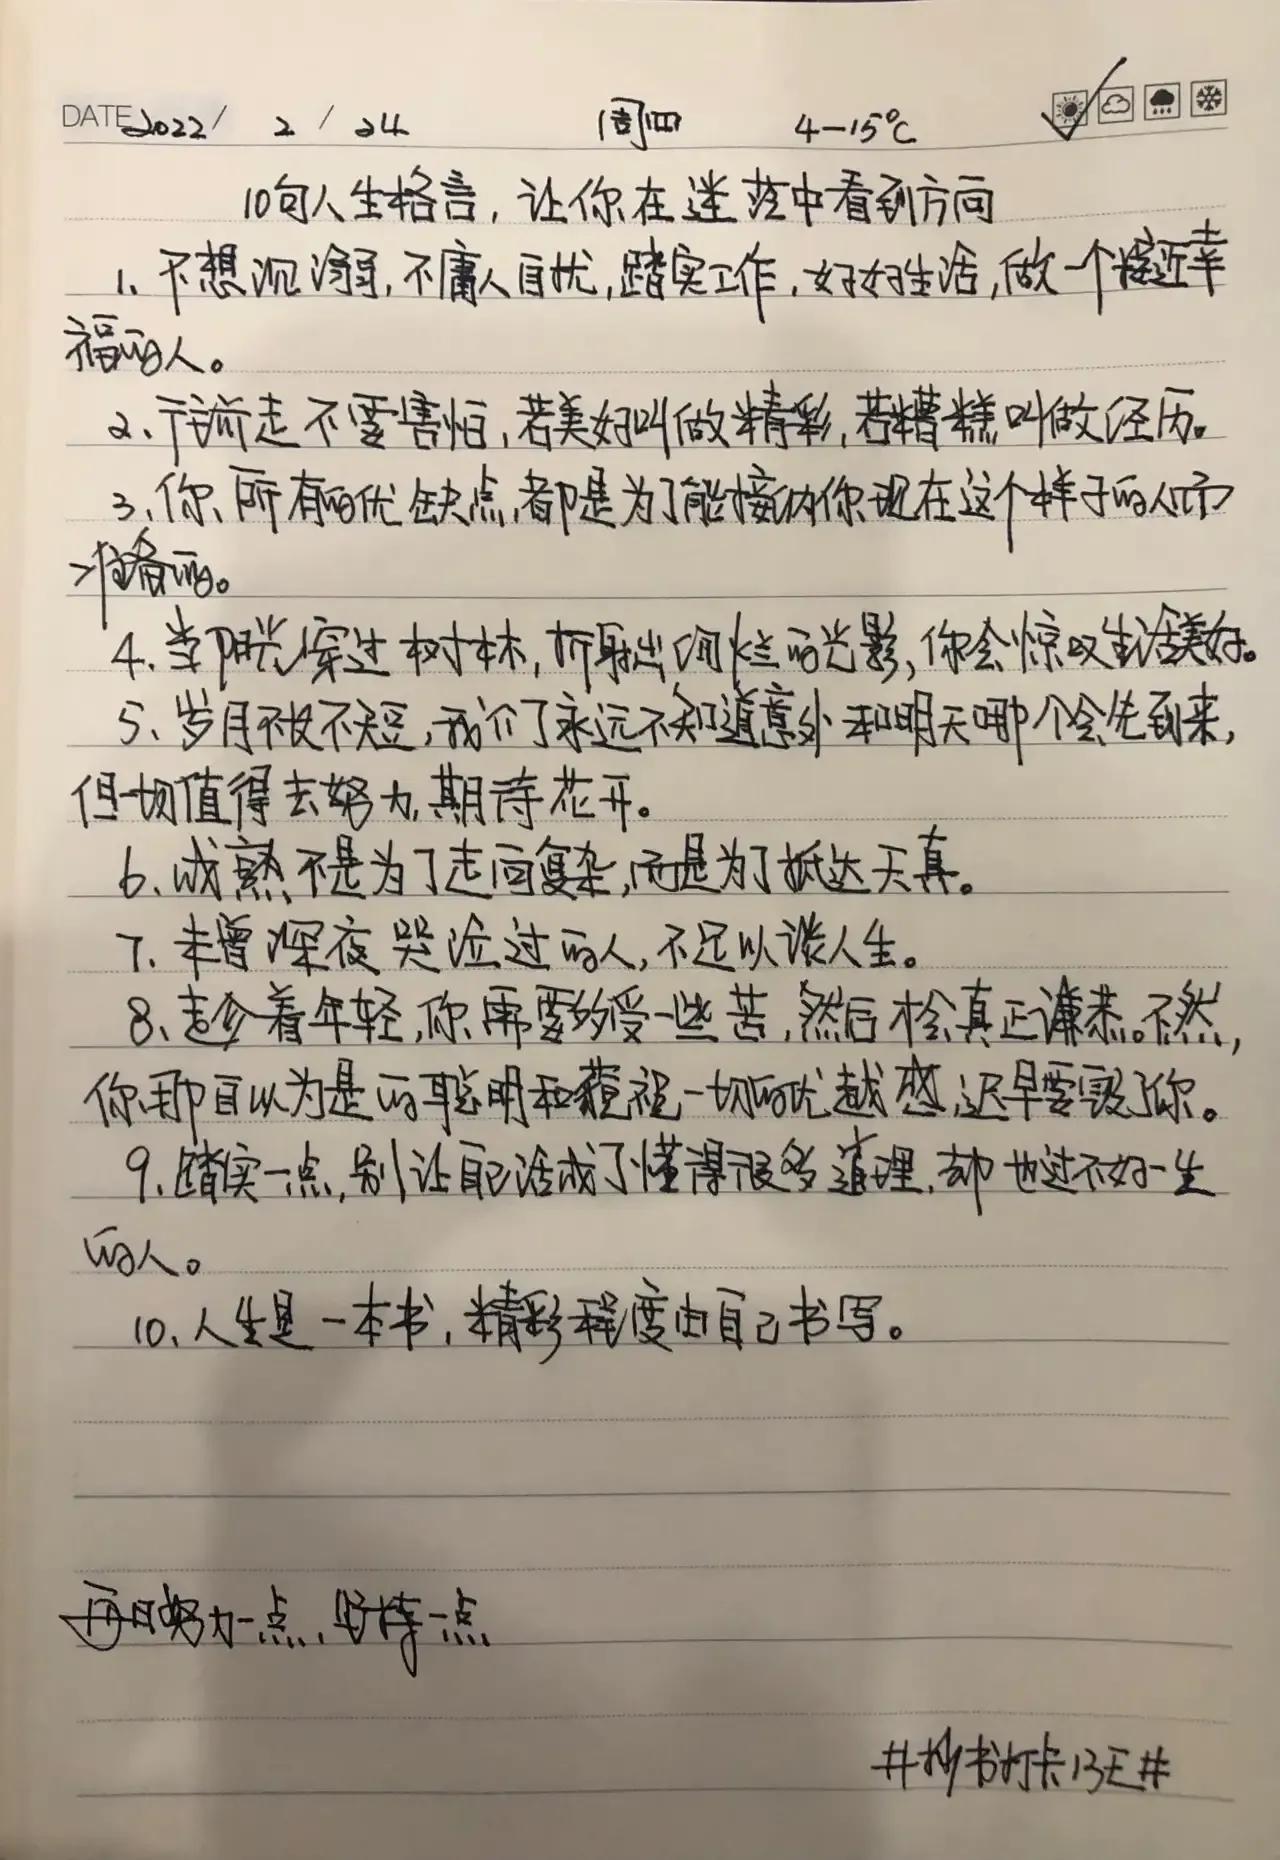 DATE 2022 / 2 / 24 周四 4—15℃
10句人生格言，让你在迷茫中看到方向
1、不想沉溺，不庸人自扰，踏实工作，好好生活，做一个接近幸
福的人。
2、往前走不要害怕，若美好叫做精彩，若糟糕叫做经历。
3、你所有的优缺点，都是为了能接纳你现在这个样子的人而
准备的。
4、当阳光穿过树林，折射出斑烂的光影，你会惊叹生活美好。
5、岁月不长不短，我们永远不知道意外和明天哪个会先到来，
但一切值得去努力，期待花开。
6、成熟不是为了走向复杂，而是为了抵达天真。
7、未曾深夜哭泣过的人，不足以谈人生。
8、趁着年轻，你需要多受一些苦，然后才会真正谦恭。不然，
你那自以为是的聪明和藐视一切的优越感，迟早要毁了你。
9、踏实一点，别让自己活成了懂得很多道理，却也过不好一生
的人。
10、人生是一本书，精彩程度由自己书写。
每日努力一点，坚持一点
#抄书打卡13天#